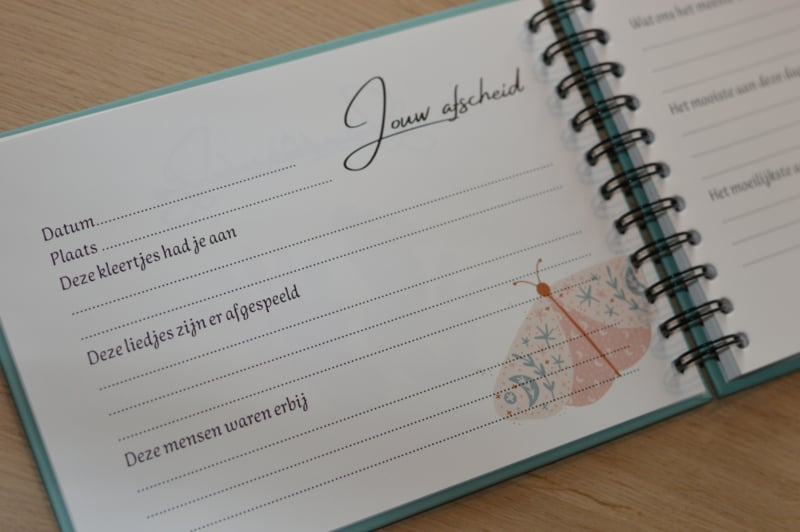 Jouw afscheid
Datum
Plaats
Deze kleertjes had je aan
Deze liedjes zijn er afgespeeld
Deze mensen waren erbij
Wat ons het meeste
Het mooiste aan deze
Het moeilijkste